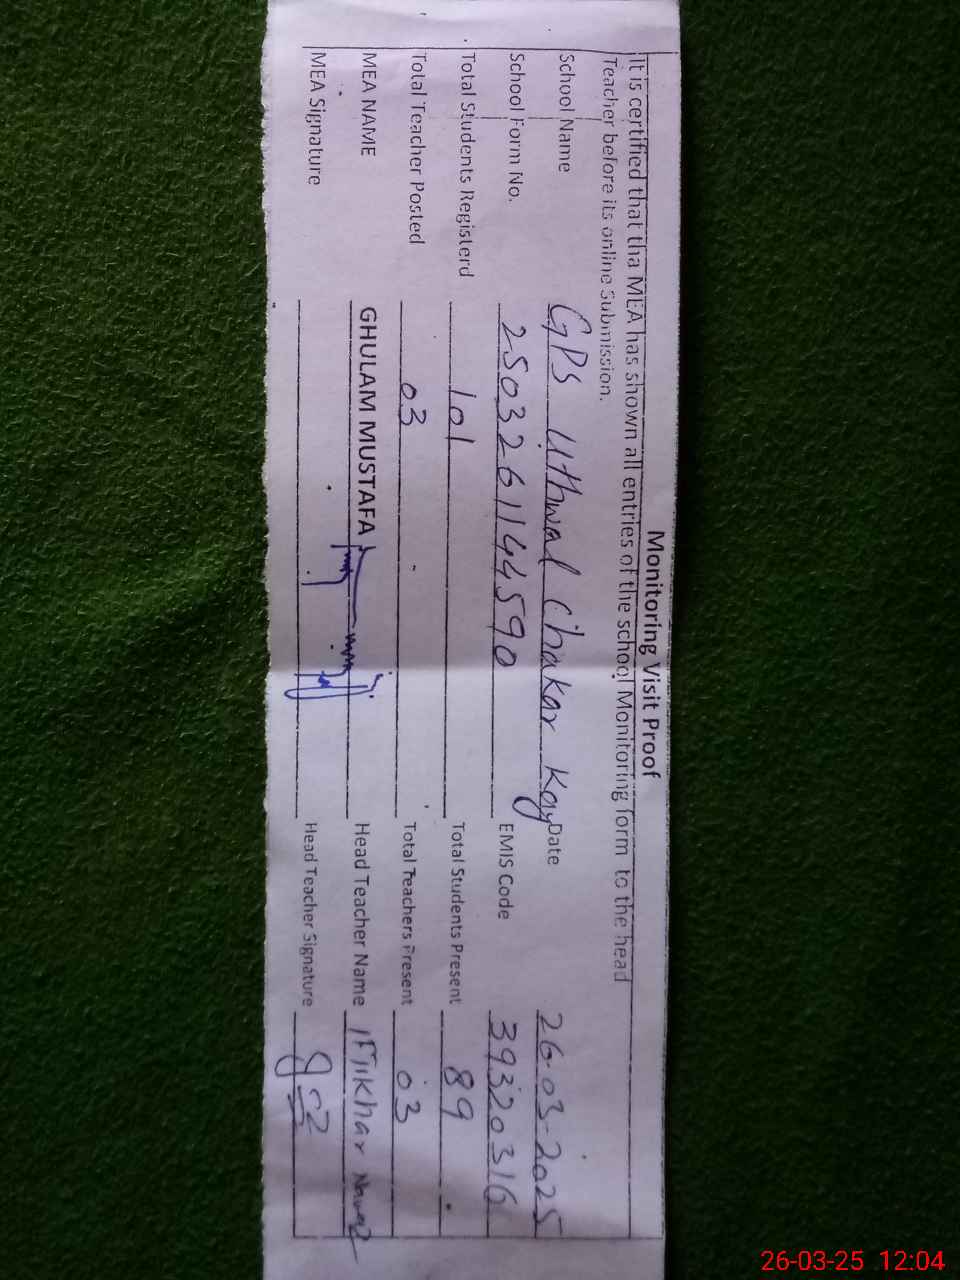 Monitoring Visit Proof
It is certified that tha MEA has shown all entries of the school Monitoring form to the head
Teacher before its online Submission.
School Name GPS Uthwal Chakar Kay Date 26-03-2025
School Form No. 2503261144590 EMIS Code 39320316
Total Students Registerd 101 Total Students Present 89
Total Teacher Posted 03 Total Teachers Present 03
MEA NAME GHULAM MUSTAFA Head Teacher Name Iftikhar Nawaz
MEA Signature Head Teacher Signature
26-03-25 12:04